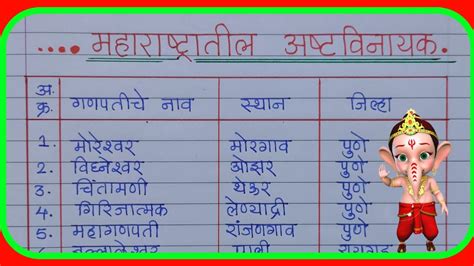 .... महाराष्ट्रातील अष्टविनायक.
अ.
क्र. गणपतीचे नाव स्थान जिल्हा
1. मोरेश्वर मोरगाव पुणे
2. विघ्नेश्वर ओझर पुणे
3. चिंतामणी थेऊर पुणे
4. गिरिजात्मक लेण्याद्री पुणे
5. महागणपती रांजणगाव पुणे